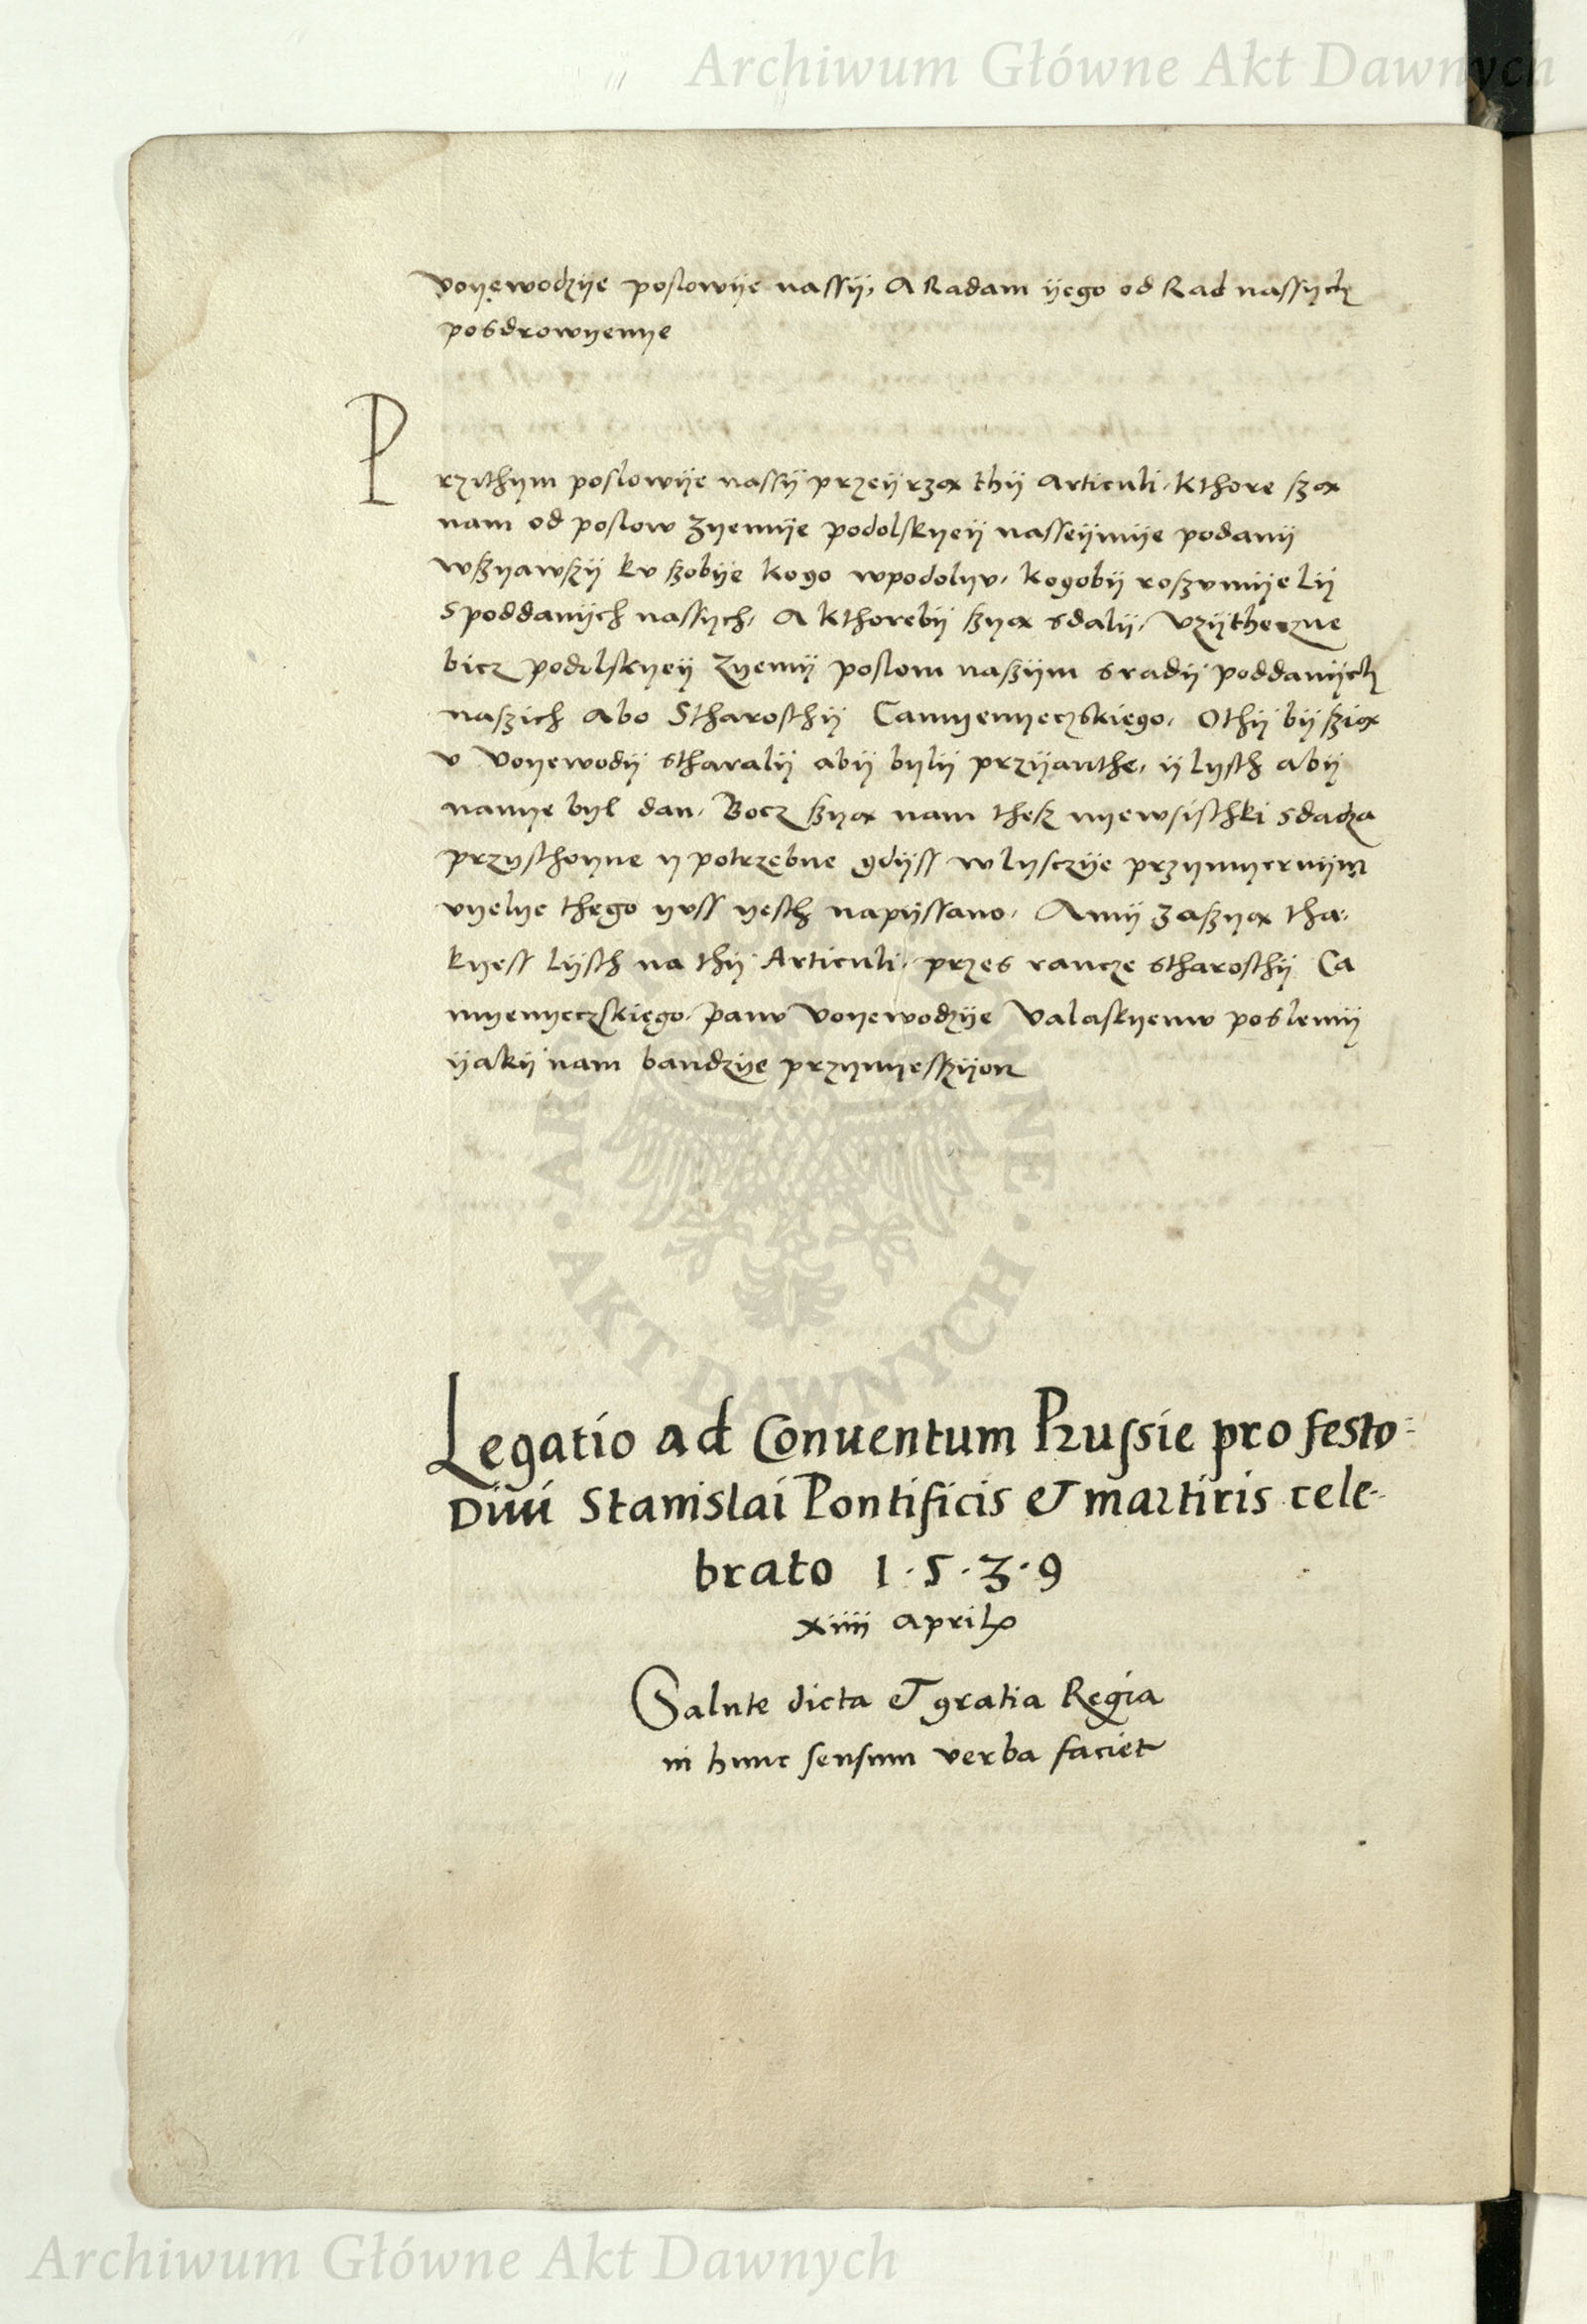 Archiwum Główne Akt Dawnych
voyewodzije poslowije nassij, A Radam ijego od Rad nassijch
posdrowyenye
Przithym poslowije nassij przeijrzą thij Articuli, kthore szą
nam od poslow Zyemije podolskyeij nasseijmije podanij
wszyawszij kv szobije kogo wpodolyv, kogobij roszvmije lij
s poddanijch nassych, A kthorebij szyą sdalij, vzijtheczne
bicz podolskyeij Zyemij poslom naszijm s radij poddanijch
naszich Abo Stharosthij Camyenyeczskiego, Othij bij szią
v voyewodij stharalij abij bylij przijanthe, ij lysth abij
namye byl dan, Bocz szyą nam thesz nyewsisthki sdadza
przysthoyne y potrzebne gdijss w lysczije przymyernijm
vyelye thego yvss yesth napijssano, Amij zaszyą tha,
kyess lijsth na thij Articuli, przes rancze stharosthij Ca
myenyeczskiego, panv voyewodzije valaskyemv poslemij
ijakij nam bandzije przynyesszijon
ARCHIWUM GŁÓWNE · AKT DAWNYCH ·
Legatio ad Conuentum Prussie pro festo
Diui Stanislai Pontificis & martiris cele-
brato 1·5·3·9
xiiii Aprilis
Salute dicta & gratia Regia
in hunc sensum verba faciet
Archiwum Główne Akt Dawnych